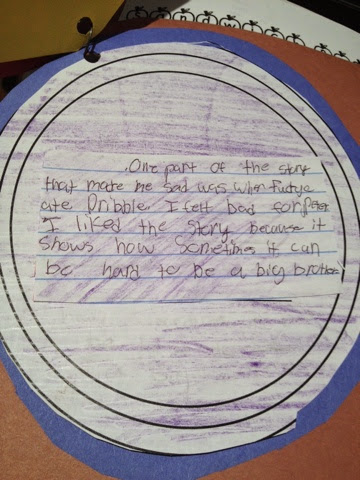 One part of the story
that mate me sad was when Fudge
ate Dribble. I felt bad for Peter
I liked the story because it
shows how sometimes it can
be hard to be a big brother